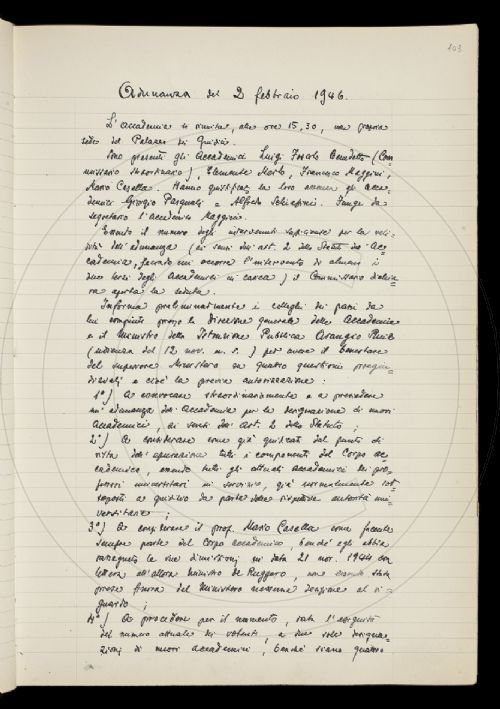 103
Adunanza del 2 febbraio 1946.
L'Accademia si riunisce, alle ore 15,30, nella propria
sede del Palazzo dei Giudici.
Sono presenti gli Accademici Luigi Foscolo Benedetto (Com-
missario straordinario), Clemente Merlo, Francesco Maggini,
Mario Casella. Hanno giustificato la loro assenza gli Acca-
demici Giorgio Pasquali e Alfredo Schiaffini. Funge da
segretario l'accademico Maggini.
Essendo il numero degli intervenuti sufficiente per la vali-
dità dell'adunanza (ai sensi dell'art. 2 dello Statuto dell'Ac-
cademia, secondo cui occorre l'intervento di almeno i
due terzi degli Accademici in carica) il Commissario dichia-
ra aperta la seduta.
Informa preliminarmente i colleghi dei passi da
lui compiuti presso la Direzione generale delle Accademie
e il Ministro della Istruzione Pubblica Arangio Ruiz
(udienza del 12 nov. u. s.) per avere il benestare
del superiore Ministero su quattro questioni pregiu-
diziali e cioè la previa autorizzazione:
1°) A convocare straordinariamente e a presiedere
un'adunanza dell'Accademia per la designazione di nuovi
Accademici, ai sensi dell'art. 2 dello Statuto;
2°) A considerare come già giudicati dal punto di
vista dell'epurazione tutti i componenti del Corpo ac-
cademico, essendo tutti gli attuali accademici dei pro-
fessori universitari in servizio, già normalmente sot-
toposti a giudizio da parte delle rispettive autorità uni-
versitarie;
3°) A considerare il prof. Mario Casella come facente
sempre parte del Corpo accademico, benché egli abbia
rassegnato le sue dimissioni in data 21 nov. 1944 con
lettera all'allora ministro de Ruggiero, non essendo stata
presa finora dal Ministero nessuna decisione al ri-
guardo;
4°) A procedere per il momento, data l'esiguità
del numero attuale dei votanti, a due sole designa-
zioni di nuovi accademici, benché siano quattro